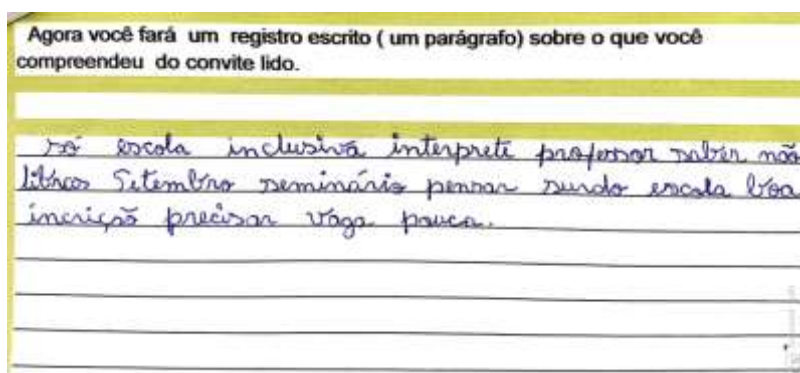 Agora você fará um registro escrito ( um parágrafo) sobre o que você
compreendeu do convite lido.
só escola inclusiva interprete professor saber não
libras Setembro seminário pensar surdo escola boa
incrição precisar vaga pouca.